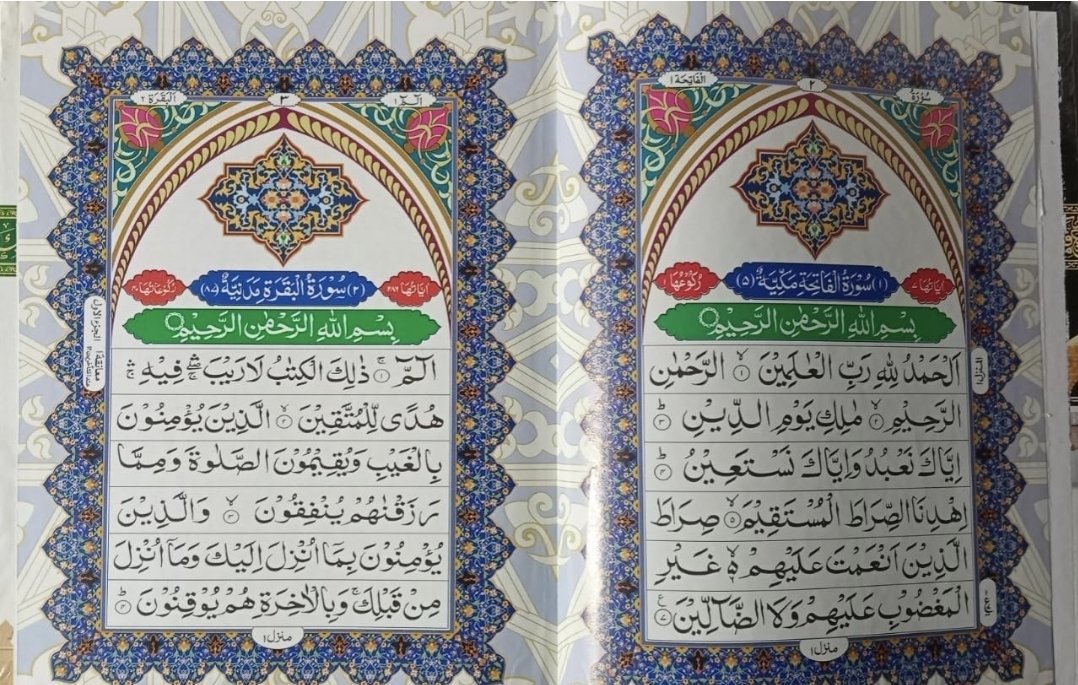 سُوْرَةُ
٢
اَلْفَاتِحَة ١
اٰيَاتُهَا ٧
(١) سُوْرَةُ الْفَاتِحَةِ مَكِّيَّةٌ (٥)
رُكُوْعُهَا ١
بِسْمِ اللهِ الرَّحْمٰنِ الرَّحِيْمِ
اَلْحَمْدُ لِلّٰهِ رَبِّ الْعٰلَمِيْنَ ۙ ١ الرَّحْمٰنِ
الرَّحِيْمِ ۙ ٢ مٰلِكِ يَوْمِ الدِّيْنِ ؕ ٣
اِيَّاكَ نَعْبُدُ وَاِيَّاكَ نَسْتَعِيْنُ ؕ ٤
اِهْدِنَا الصِّرَاطَ الْمُسْتَقِيْمَ ۙ ٥ صِرَاطَ
الَّذِيْنَ اَنْعَمْتَ عَلَيْهِمْ ۙ ٦ غَيْرِ
الْمَغْضُوْبِ عَلَيْهِمْ وَلَا الضَّآلِّيْنَ ٧ ع
المنزل ١
منزل ١
الٓمّٓ ١
٣
اَلْبَقَرَة ٢
اٰيَاتُهَا ٢٨٦
(٢) سُوْرَةُ الْبَقَرَةِ مَدَنِيَّةٌ (٨٧)
رُكُوْعَاتُهَا ٤٠
بِسْمِ اللهِ الرَّحْمٰنِ الرَّحِيْمِ
الٓمّٓ ۚ ١ ذٰلِكَ الْكِتٰبُ لَا رَيْبَ ۛۖ فِيْهِ ۛۚ
هُدًى لِّلْمُتَّقِيْنَ ۙ ٢ الَّذِيْنَ يُؤْمِنُوْنَ
بِالْغَيْبِ وَيُقِيْمُوْنَ الصَّلٰوةَ وَمِمَّا
رَزَقْنٰهُمْ يُنْفِقُوْنَ ۙ ٣ وَالَّذِيْنَ
يُؤْمِنُوْنَ بِمَآ اُنْزِلَ اِلَيْكَ وَمَآ اُنْزِلَ
مِنْ قَبْلِكَ ۚ وَبِالْاٰخِرَةِ هُمْ يُوْقِنُوْنَ ؕ ٤
الجزء الاول
معانقة ١
منزل ١